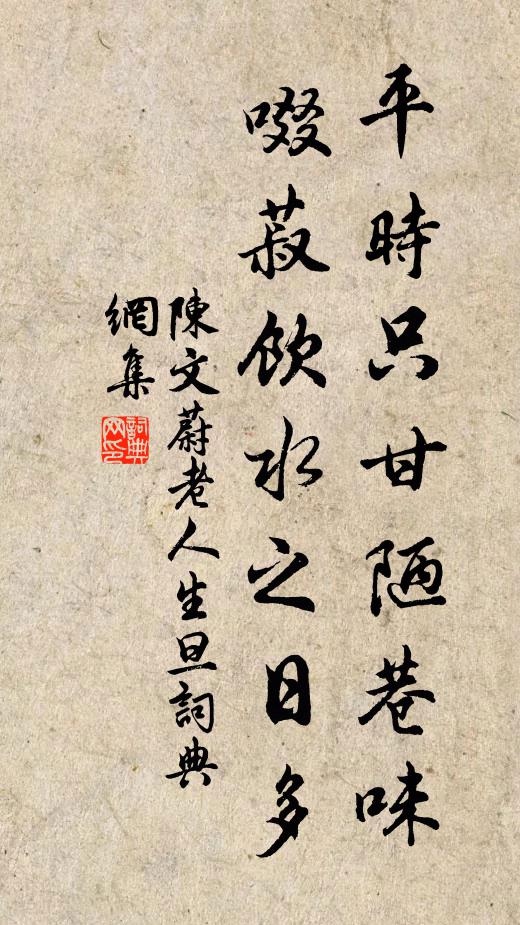 平時只甘陋巷味
啜菽飲水之日多
陳文蔚老人生旦詞典
網集
詞典
网印